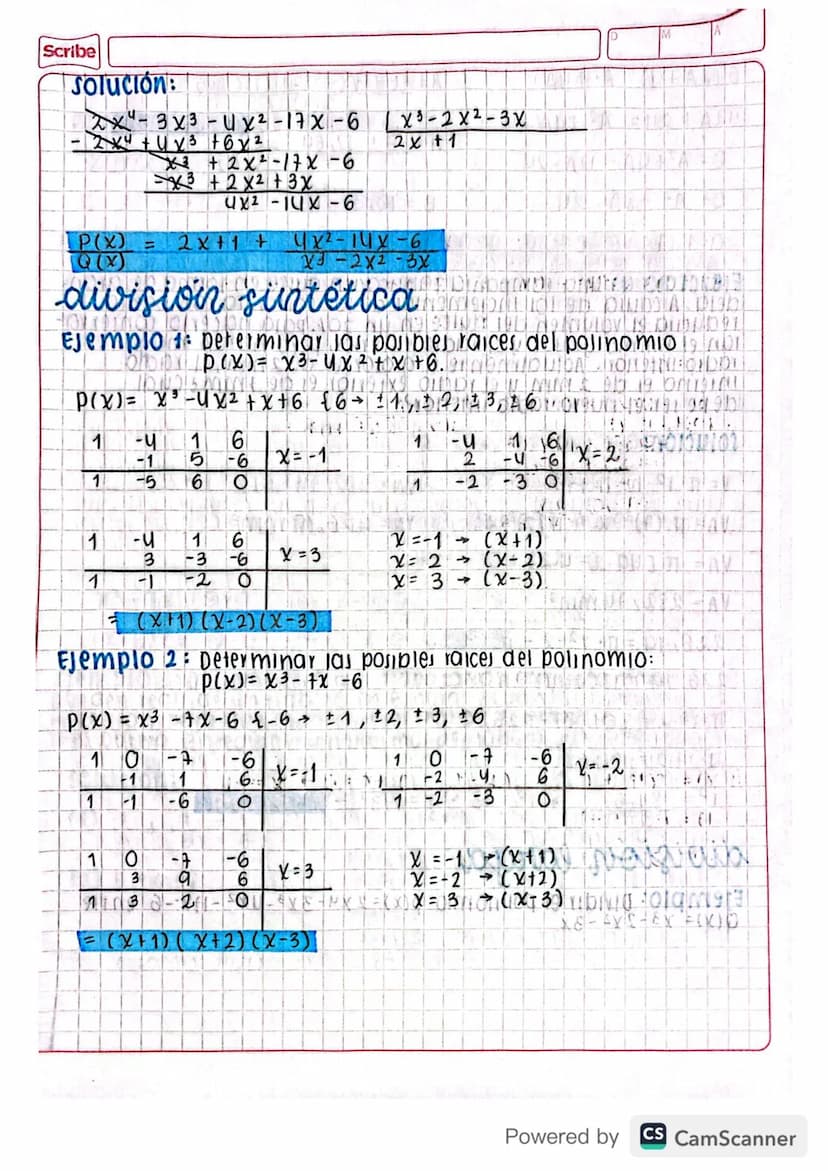 Scribe
D M A
solución:
2x⁴ - 3x³ - 4x² - 17x - 6 | x³ - 2x² - 3x
- 2x⁴ + 4x³ + 6x² 2x + 1
x³ + 2x² - 17x - 6
- x³ + 2x² + 3x
4x² - 14x - 6
P(x) = 2x + 1 + 4x² - 14x - 6
Q(x) x³ - 2x² - 3x
división sintética
Ejemplo 1: Determinar las posibles raices del polinomio
P(x) = x³ - 4x² + x + 6.
P(x) = x³ - 4x² + x + 6 {6 → ±1, ±2, ±3, ±6
1 -4 1 6 1 -4 1 6
-1 5 -6 x = -1 2 -4 -6 x = 2
1 -5 6 0 1 -2 -3 0
1 -4 1 6 x = -1 → (x+1)
3 -3 -6 x = 3 x = 2 → (x-2)
1 -1 -2 0 x = 3 → (x-3)
= (x+1)(x-2)(x-3)
Ejemplo 2: Determinar las posibles raices del polinomio:
P(x) = x³ - 7x - 6
P(x) = x³ - 7x - 6 {-6 → ±1, ±2, ±3, ±6
1 0 -7 -6 1 0 -7 -6
-1 1 6 x = -1 -2 4 6 x = -2
1 -1 -6 0 1 -2 -3 0
1 0 -7 -6 x = -1 → (x+1)
3 9 6 x = 3 x = -2 → (x+2)
1 3 2 0 x = 3 → (x-3)
= (x+1)(x+2)(x-3)
Powered by CS CamScanner